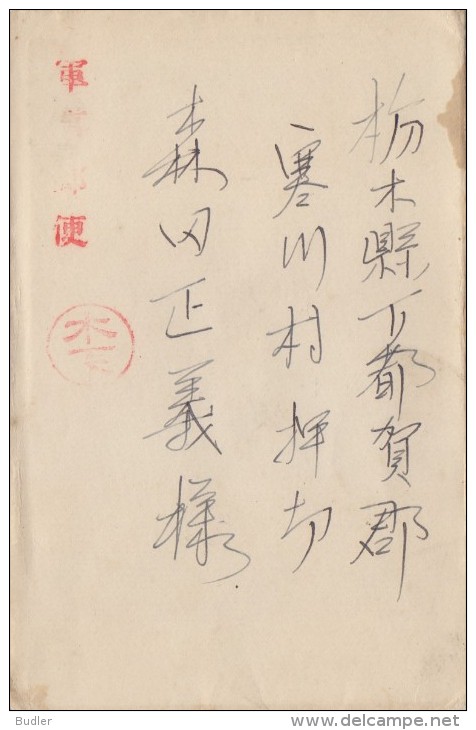 栃木縣下都賀郡
寒川村押切
森田正義様
軍事郵便
木下
Budler
delcampe.net